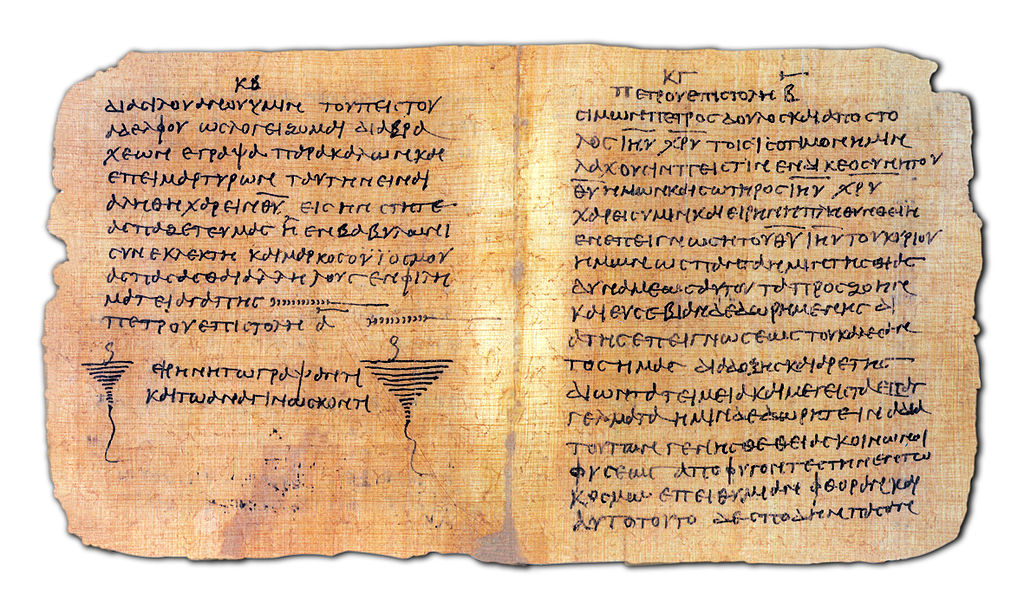 ΚΒ
ΔΙΑϹΙΛΟΥΑΝΟΥΥΜΙΝ ΤΟΥΠΕΙϹΤΟΥ
ΑΔΕΛΦΟΥ ΩϹΛΟΓΕΙΖΟΜΑΙ ΔΙΑΒΡΑ
ΧΕΩΝ ΕΓΡΑΨΑ ΠΑΡΑΚΑΛΩΝΚΑΙ
ΕΠΕΙΜΑΡΤΥΡΩΝ ΤΑΥΤΗΝΕΙΝΑΙ
ΑΛΗΘΗ ΧΑΡΕΙΝ Θ̅Υ̅ ΕΙϹ ΗΝ ϹΤΗΤΕ
ΑϹΠΑΖΕΤΕΥΜΑϹ Η ΕΝΒΑΒΥΛΩΝΙ
ϹΥΝΕΚΛΕΚΤΗ ΚΑΙΜΑΡΚΟϹΟΥΙΟϹΜΟΥ
ΑϹΠΑϹΑϹΘΑΙΑΛΛΗΛΟΥϹ ΕΝΦΙΛΗ
ΜΑΤΕΙΑΓΑΠΗϹ
ΠΕΤΡΟΥΕΠΙϹΤΟΛΗ Α̅
ΕΙΡΗΝΗΤΩΓΡΑΨΑΝΤΙ
ΚΑΙΤΩΑΝΑΓΙΝΩϹΚΟΝΤΙ
ΚΓ
ΠΕΤΡΟΥΕΠΙϹΤΟΛΗ Β̅
ϹΙΜΩΝΠΕΤΡΟϹ ΔΟΥΛΟϹΚΑΙΑΠΟϹΤΟ
ΛΟϹ Ι̅Η̅Υ̅ Χ̅Ρ̅Υ̅ ΤΟΙϹ ΙϹΟΤΙΜΟΝΗΜΙΝ
ΛΑΧΟΥϹΙΝΠΕΙϹΤΙΝ ΕΝΔΙΚΕΟϹΥΝΗΤΟΥ
Θ̅Υ̅ ΗΜΩΝΚΑΙϹΩΤΗΡΟϹ Ι̅Η̅Υ̅ Χ̅Ρ̅Υ̅
ΧΑΡΕΙϹΥΜΙΝΚΑΙΕΙΡΗΝΗΠΛΗΘΥΝΘΕΙΗ
ΕΝΕΠΕΙΓΝΩϹΗΤΟΥΘ̅Υ̅ Ι̅Η̅Υ̅ΤΟΥΚΥΡΙΟΥ
ΗΜΩΝ ΩϹΠΑΝΤΑ ΗΜΙΝΤΗϹΘΕΙΑϹ
ΔΥΝΑΜΕΩϹΑΥΤΟΥ ΤΑΠΡΟϹΖΩΗΝ
ΚΑΙΕΥϹΕΒΙΑΝΔΕΔΩΡΗΜΕΝΗϹ ΔΙ
ΑΤΗϹΕΠΕΙΓΝΩϹΕΩϹ ΤΟΥΚΑΛΕϹΑΝ
ΤΟϹΗΜΑϹ ΔΙΑΔΟΞΗϹΚΑΙΑΡΕΤΗϹ
ΔΙΩΝΤΑΤΕΙΜΕΙΑΚΑΙΜΕΓΕΙϹΤΑΕΠΑΓ
ΓΕΛΜΑΤΑ ΗΜΙΝΔΕΔΩΡΗΤΕΙΝΑ ΔΙΑ
ΤΟΥΤΩΝ ΓΕΝΗϹΘΕ ΘΕΙΑϹΚΟΙΝΩΝΟΙ
ΦΥϹΕΩϹ ΑΠΟΦΥΓΟΝΤΕϹΤΗΝΕΝΤΩ
ΚΟϹΜΩ ΕΠΕΙΘΥΜΙΑΝ ΦΘΟΡΑΝΚΑΙ
ΑΥΤΟΤΟΥΤΟ ΔΕϹΠΟΥΔΗΝΠΑϹΑΝ